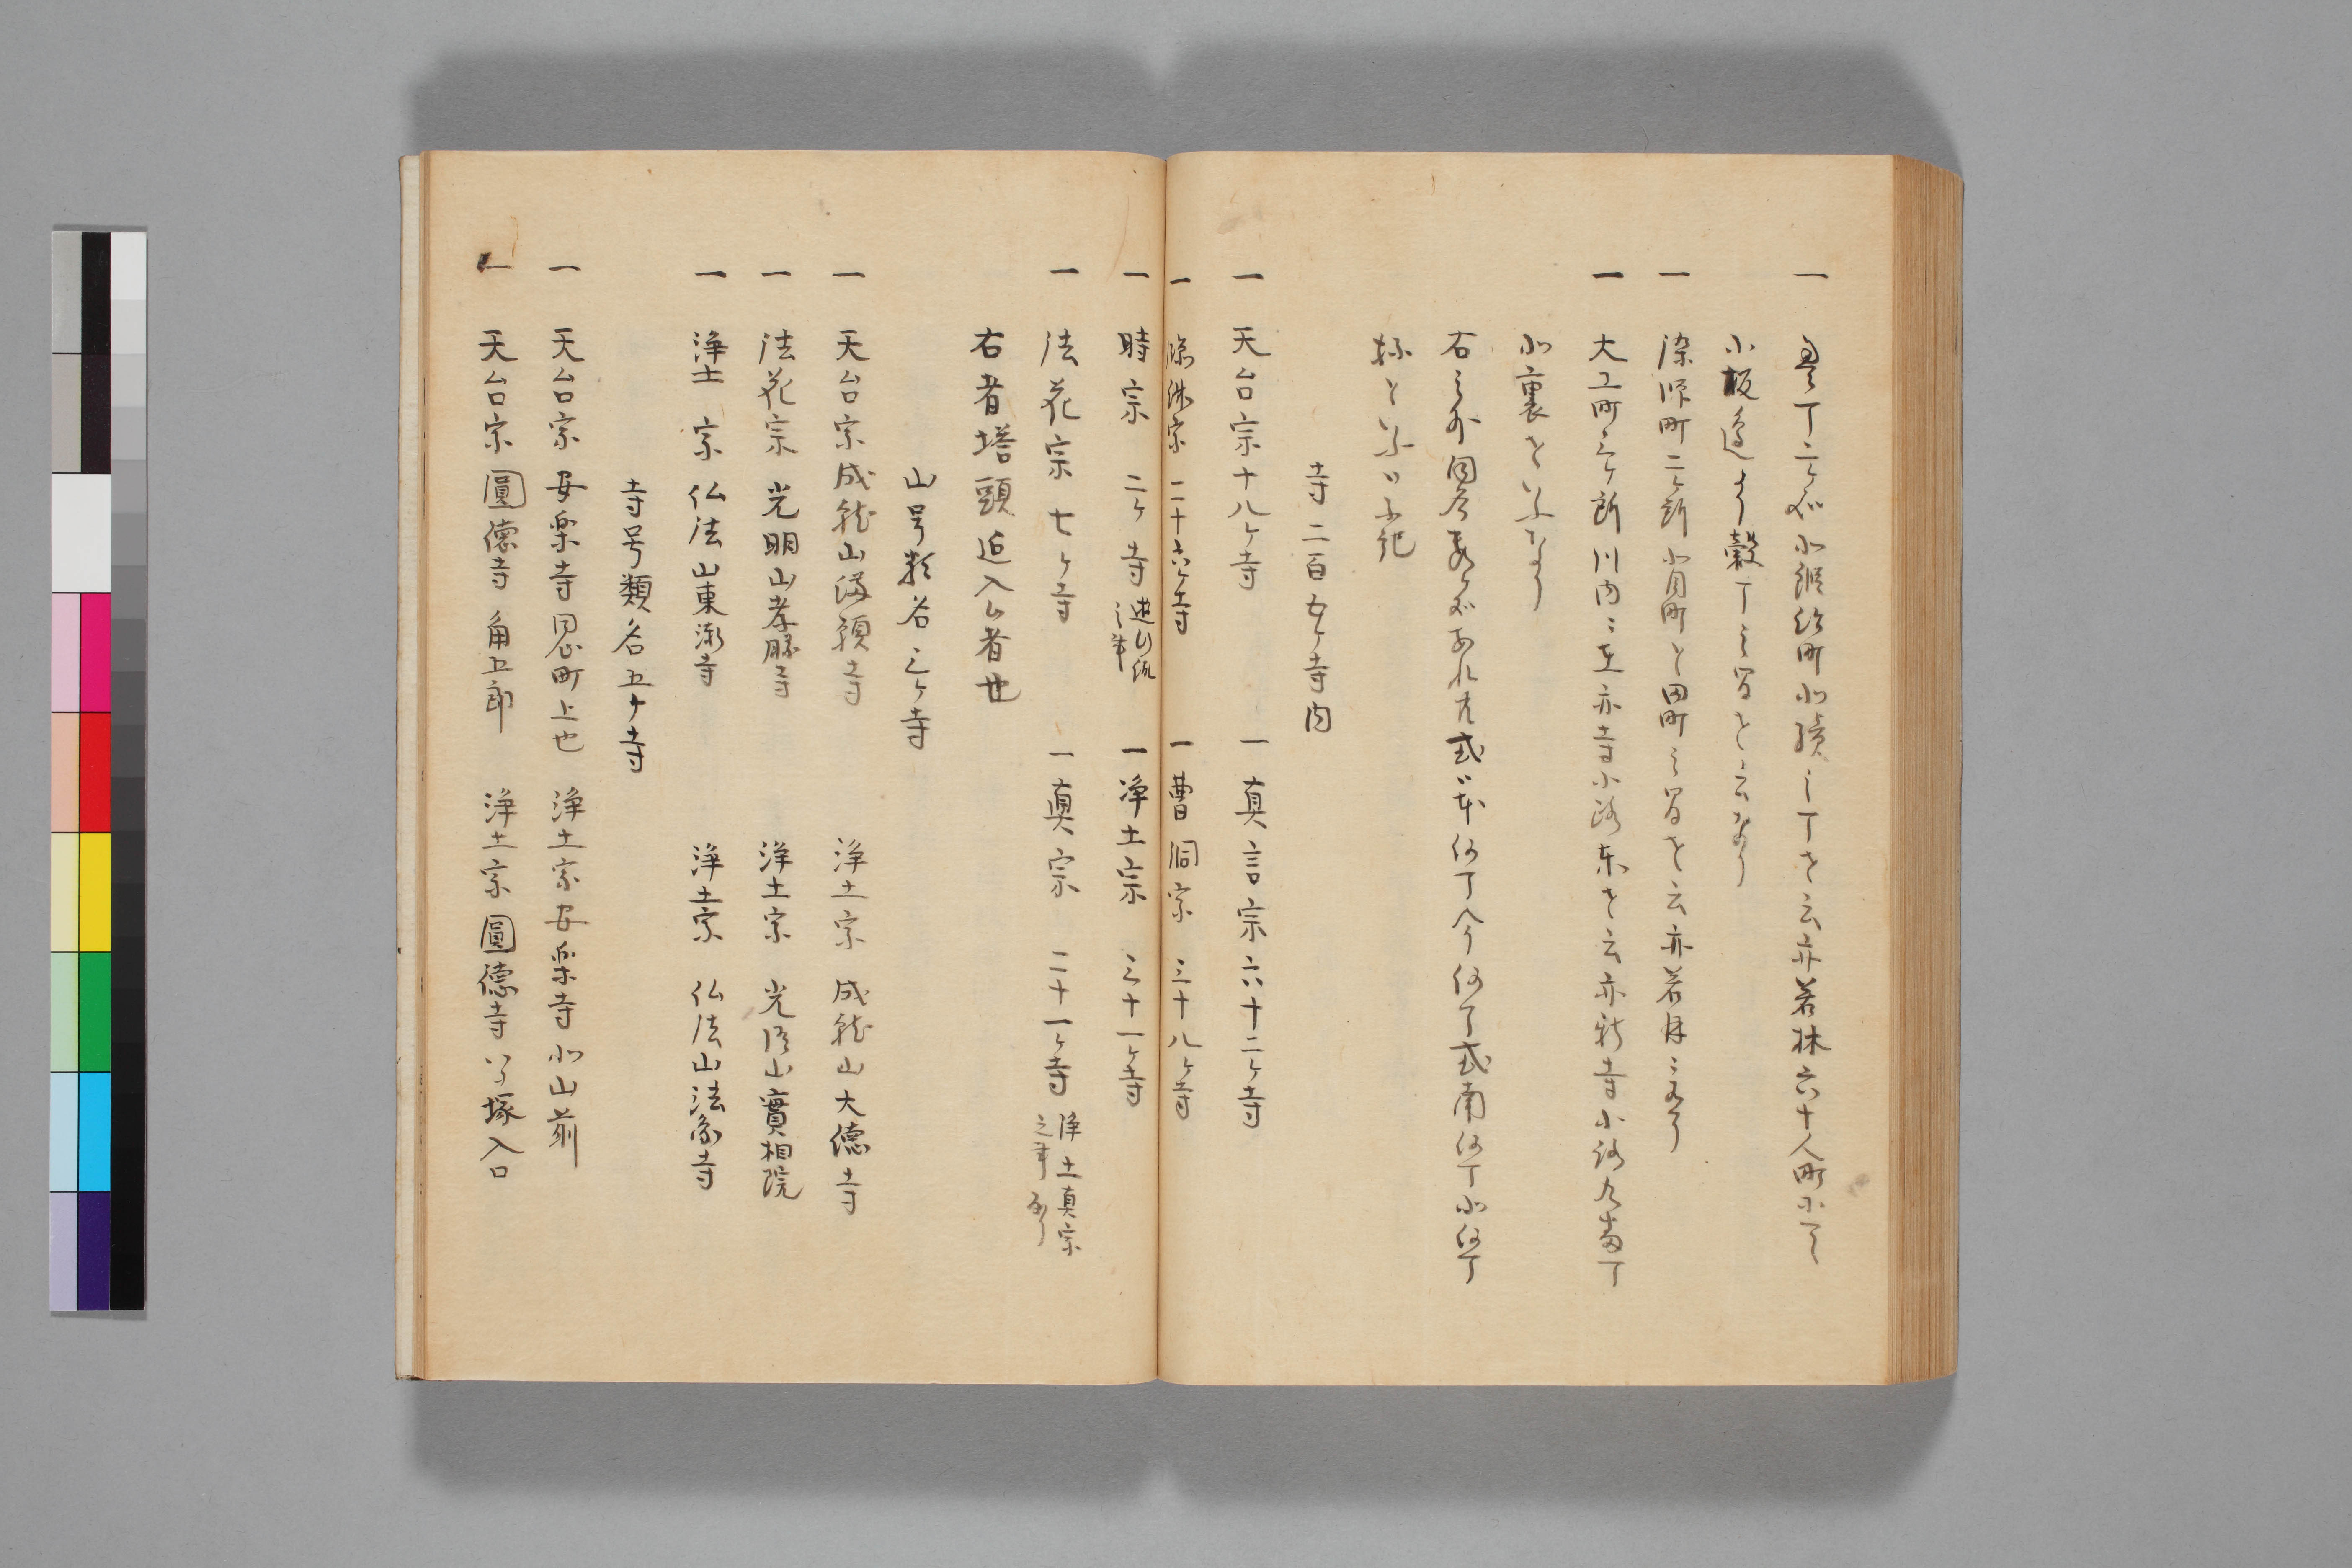 一 丁二ヶ所北鍛冶町北続之丁を云亦若林六十人町
小板通より穀丁之間を云なり
一 染師町二ヶ所北目町と田町之間を云亦若林ニ有り
一 大工町三ヶ所川内ニ在亦寺小路東を云亦新寺小路九番丁
北裏をいふなり
右之外同名数ヶ所あれ共或ハ本何丁今何丁或南何丁北何丁
抔といふハ不記
寺二百五ヶ寺内
一 天台宗十八ヶ寺 一 真言宗六十二ヶ寺
一 済宗二十六ヶ寺 一 曹洞宗 三十八ヶ寺
一 時宗 二ヶ寺 遊行派之事 一 浄土宗 三十一ヶ寺
一 法花宗 七ヶ寺 一 真宗 二十一ヶ寺 浄土真宗之事なり
右者塔頭迄入候者也
山号類名 三ヶ寺
一 天台宗成就山満願寺 浄土宗 成就山大徳寺
一 法花宗 光明山孝勝寺 浄土宗 光明山實相院
一 浄土宗 仏法山東漸寺 浄土宗 仏法山法蔵寺
寺号類名五ヶ寺
一 天台宗 安楽寺 町上也 浄土宗安楽寺 北山前
一 天台宗 圓徳寺 角五郎 浄土宗 圓徳寺 塚入口